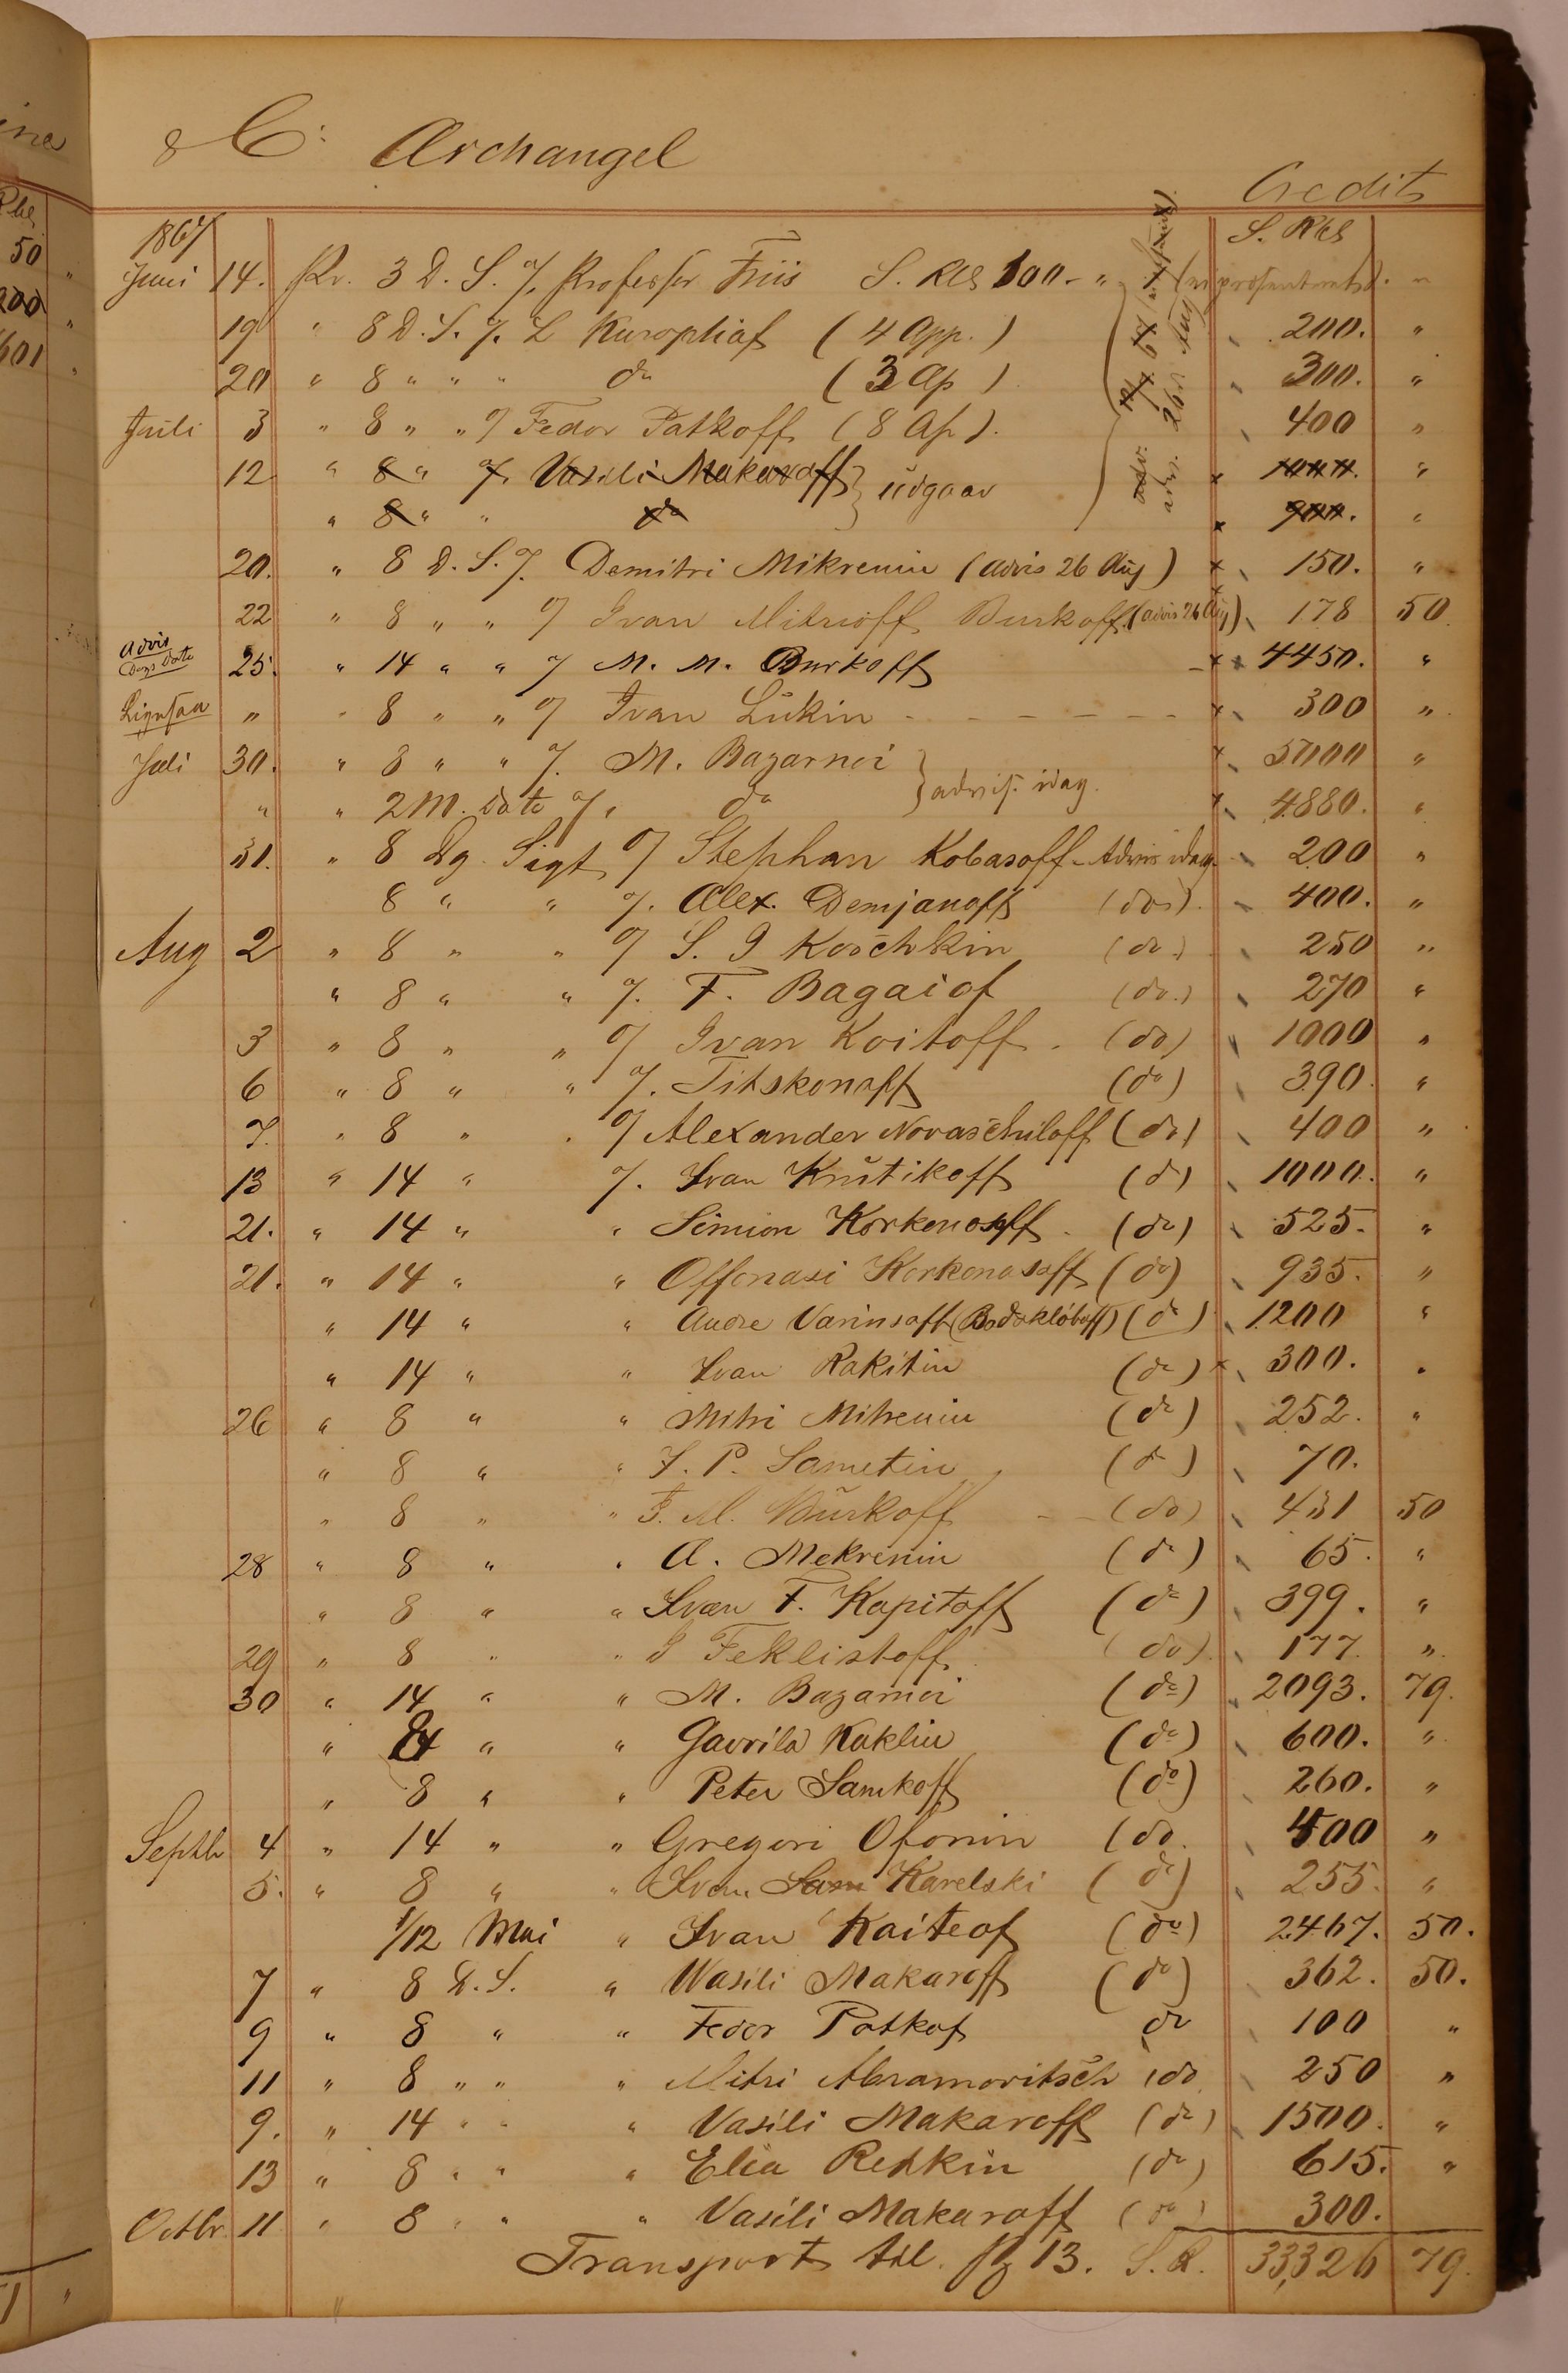 & Co: Archangel
Credit
1867 S. Rbl
Juni 14. Pr. 3 D. S. % Professor Friis S. Rbl 100.- "
19 " 8 D. S. %. L Kuroptiaf (4 App.) 200. "
20 " 8 " " " do (3 Ap) 300. "
Juli 3 " 8 " " % Fedor Patkoff (8 Ap). 400 "
12 " 8 " % Vasili Makaroff } udgaar 1000. "
" 8 " " do 900. "
20. " 8 D. S. %. Demitri Mikrenin (advis 26 Aug) 150. "
22 " 8 " " % Ivan Mitrioff Burkoff (advis 26 Aug) 178 50
advis
Dags Dato
25. " 14 " " % M. M. Burkoff 4450. "
Ligesaa " " 8 " " % Ivan Lukin - - - - - 300 "
Juli 30. " 8 " " %. M. Bazarnoi 5000 "
" " 2 M. Dato %. do } advis. idag. 4880. "
31. " 8 Dg. Sigt % Stephan Kobasoff - Advis idag. 200 "
8 " " %. Alex. Demjanoff (do). 400. "
Aug 2 " 8 " " % S. I Koschkin (do.) 250 "
" 8 " " %. F. Bagaiof (do.) 270 "
3 " 8 " " % Ivan Koitoff. (do) 1000 "
6 " 8 " " %. Titskonoff (do) 390. "
7. " 8 " " % Alexander Novaschiloff (do) 400 "
13 " 14 " %. Ivan Krutikoff (do) 1000. "
21. " 14 " " Simion Korkonosoff. (do) 525. "
21. " " 14 " " Offonasi Korkonosoff (do) 935. "
" 14 " " Andre Varinsoff (Bodoklóboff) (do) 1200 "
" 14 " " Ivan Rakitin (do) 300. "
26 " 8 " " Mitri Mitrenin (do) 252. "
" 8 " " I. P. Sametin (do) 70.
" 8 " " F. M. Burkoff - - (do) 431 50
28 " 8 " " A. Mekrenin (do) 65. "
" 8 " " Ivan F. Kapitoff (do) 399. "
29 " 8 " " I Feklistoff (do). 177. "
30 " 14 " " M. Bazarnoi (do) 2093. 79.
" 8 " " Gavrila Kuklin (do) 600. "
" 8 " " Peter Samkoff (do) 260. "
Septbr 4 " 14 " " Gregori Ofonin (do. 400 "
5. " 8 " " Ivan Sam Karelski (do) 255. "
1/12 Mai " Ivan Kaiteof (do) 2467. 50.
7 " 8 D. S. " Wasili Makaroff (do) 362. 50.
9 " 8 " " Fedor Patkof do 100 "
11 " 8 " " " Mitri Abramovitsch (do 250 "
9. " 14 " " " Vasili Makaroff (do) 1500. "
13 " 8 " " " Elia Redkin (do) 615. "
Octbr. 11 " 8 " " " Vasili Makaroff (do) 300.
Transport til pg 13. S. R. 33,326 79.